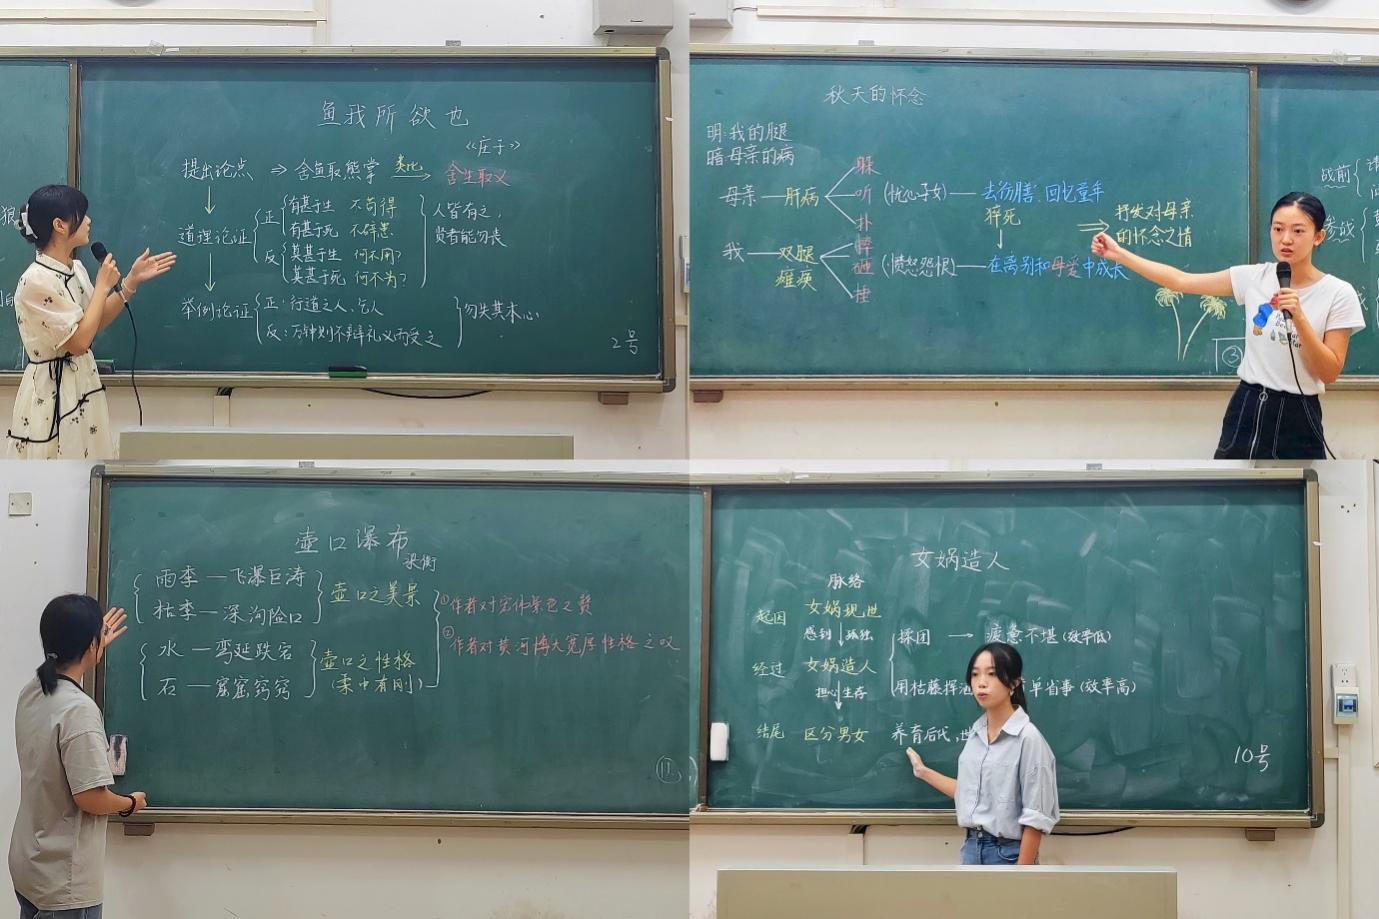 鱼我所欲也
《庄子》
提出论点 ⇒ 舍鱼取熊掌 类比→ 舍生取义
道理论证
正 有甚于生 不苟得
有甚于死 不辟患
反 莫甚于生 何不用?
莫甚于死 何不为?
人皆有之,
贤者能勿丧
举例论证
正:行道之人、乞人
反:万钟则不辩礼义而受之
勿失其本心
2号
狼
秋天的怀念
明:我的腿
暗 母亲的病
母亲—肝病
躲
听
扑
(忧心子女)—去彷膳、回忆童年
猝死
我—双腿
瘫痪
砸
(愤怒怨恨)—在离别和母爱中成长
⇒ 抒发对母亲
的怀念之情
③
战前
参战
壶口瀑布
梁衡
雨季—飞瀑巨涛
枯季—深沟险口
壶口之美景
水—弯延跌宕
石—窟窟窍窍
壶口之性格
(柔中有刚)
①作者对宏伟景色之赞
②作者对黄河博大宽厚性格之叹
11
女娲造人
脉络
起因 女娲现世
感到 孤独
经过 女娲造人
担心 生存
结尾 区分男女
揉团 → 疲惫不堪(效率低)
用枯藤挥 单省事(效率高)
养育后代,
10号